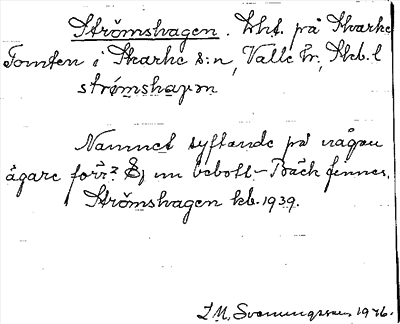 Strömshagen. Lht. på Skarke
Tomten i Skarke s:n, Valle hr, Skb. l
strömshagen
Namnet syftande på någon
ägare förr? Ej nu bebott. – Bäck finnes.
Strömshagen kb. 1939.
I. M. Svenungsson 1946.